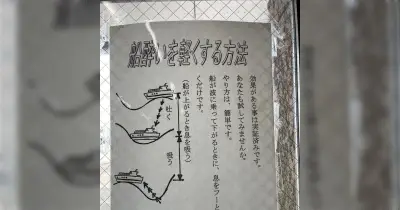 船酔いを軽くする方法
効果がある事は実証済みです。
あなたも試してみませんか。
やり方は、簡単です。
船が波に乗って下がるときに、息をフーと
くだけです。
(船が上がるとき息を吸う)
吐く
吸う